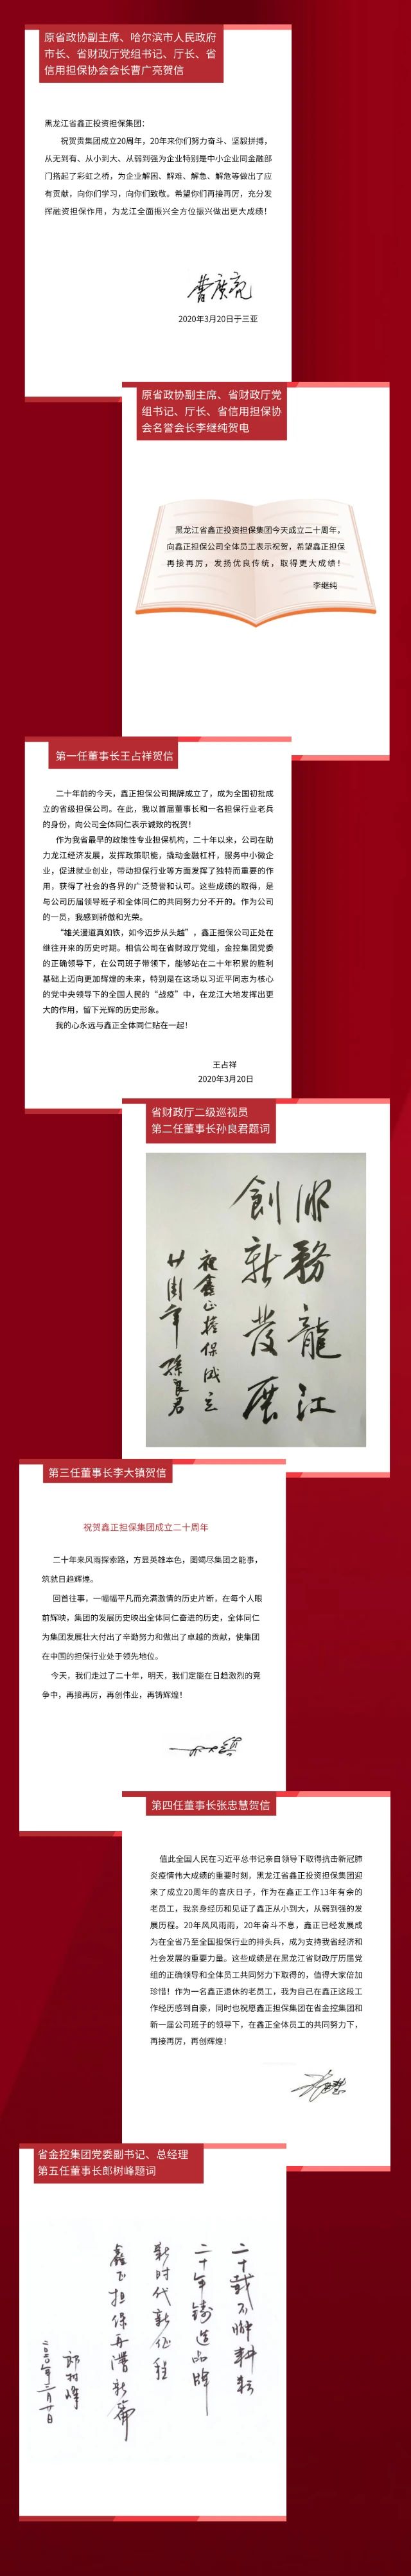 原省政协副主席、哈尔滨市人民政府
市长、省财政厅党组书记、厅长、省
信用担保协会会长曹广亮贺信
黑龙江省鑫正投资担保集团：
祝贺贵集团成立20周年，20年来你们努力奋斗、坚毅拼搏，
从无到有、从小到大、从弱到强为企业特别是中小企业同金融部
门搭起了彩虹之桥，为企业解困、解难、解急、解危等做出了应
有贡献，向你们学习，向你们致敬。希望你们再接再厉，充分发
挥融资担保作用，为龙江全面振兴全方位振兴做出更大成绩！
曹广亮
2020年3月20日于三亚
原省政协副主席、省财政厅党
组书记、厅长、省信用担保协
会名誉会长李继纯贺电
黑龙江省鑫正投资担保集团今天成立二十周年，
向鑫正担保公司全体员工表示祝贺，希望鑫正担保
再接再厉，发扬优良传统，取得更大成绩！
李继纯
第一任董事长王占祥贺信
二十年前的今天，鑫正担保公司揭牌成立了，成为全国初批成
立的省级担保公司。在此，我以首届董事长和一名担保行业老兵
的身份，向公司全体同仁表示诚致的祝贺！
作为我省最早的政策性专业担保机构，二十年以来，公司在助
力龙江经济发展，发挥政策职能，撬动金融杠杆，服务中小微企
业，促进就业创业，带动担保行业等方面发挥了独特而重要的作
用，获得了社会的各界的广泛赞誉和认可。这些成绩的取得，是
与公司历届领导班子和全体同仁的共同努力分不开的。作为公司
的一员，我感到骄傲和光荣。
“雄关漫道真如铁，如今迈步从头越”，鑫正担保公司正处在
继往开来的历史时期。相信公司在省财政厅党组，金控集团党委
的正确领导下，在公司班子带领下，能够站在二十年积累的胜利
基础上迈向更加辉煌的未来，特别是在这场以习近平同志为核心
的党中央领导下的全国人民的“战疫”中，在龙江大地发挥出更
大的作用，留下光辉的历史形象。
我的心永远与鑫正全体同仁贴在一起！
王占祥
2020年3月20日
省财政厅二级巡视员
第二任董事长孙良君题词
服務龍江
創新發展
祝鑫正擔保成立
廿周年 孫良君
第三任董事长李大镇贺信
祝贺鑫正担保集团成立二十周年
二十年来风雨探索路，方显英雄本色，图竭尽集团之能事，
筑就日趋辉煌。
回首往事，一幅幅平凡而充满激情的历史片断，在每个人眼
前辉映，集团的发展历史映出全体同仁奋进的历史，全体同仁
为集团发展壮大付出了辛勤努力和做出了卓越的贡献，使集团
在中国的担保行业处于领先地位。
今天，我们走过了二十年，明天，我们定能在日趋激烈的竞
争中，再接再厉，再创伟业，再铸辉煌！
第四任董事长张忠慧贺信
值此全国人民在习近平总书记亲自领导下取得抗击新冠肺
炎疫情伟大成绩的重要时刻，黑龙江省鑫正投资担保集团迎
来了成立20周年的喜庆日子，作为在鑫正工作13年有余的
老员工，我亲身经历和见证了鑫正从小到大，从弱到强的发
展历程。20年风风雨雨，20年奋斗不息，鑫正已经发展成
为在全省乃至全国担保行业的排头兵，成为支持我省经济和
社会发展的重要力量。这些成绩是在黑龙江省财政厅历届党
组的正确领导和全体员工共同努力下取得的，值得大家倍加
珍惜！作为一名鑫正退休的老员工，我为自己在鑫正这段工
作经历感到自豪，同时也祝愿鑫正担保集团在省金控集团和
新一届公司班子的领导下，在鑫正全体员工的共同努力下，
再接再厉，再创辉煌！
省金控集团党委副书记、总经理
第五任董事长郎树峰题词
二十载不懈耕耘
二十年铸造品牌
新时代新征程
鑫正担保再谱新篇
郎树峰
二〇二〇年三月廿日